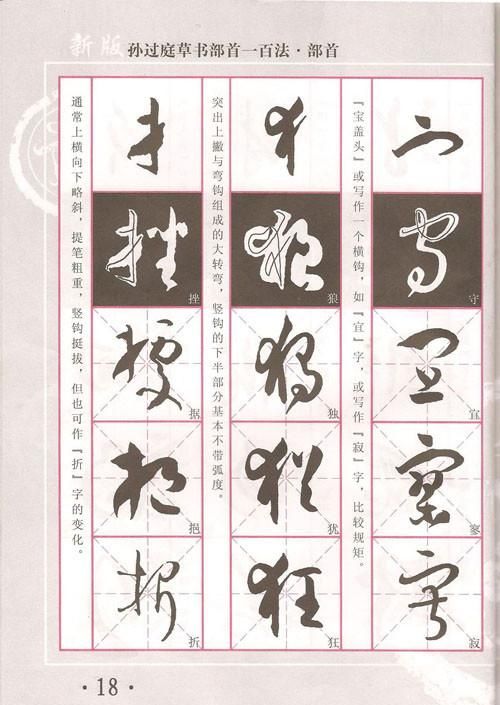 新版 孙过庭草书部首一百法·部首
『宝盖头』或写作一个横钩，如『宜』字，或写作『寂』字，比较规矩。
守
宜
寥
寂
突出上撇与弯钩组成的大转弯，竖钩的下半部分基本不带弧度。
狼
独
犹
狂
通常上横向下略斜，提笔粗重，竖钩挺拔，但也可作『折』字的变化。
挫
据
挹
折
·18·